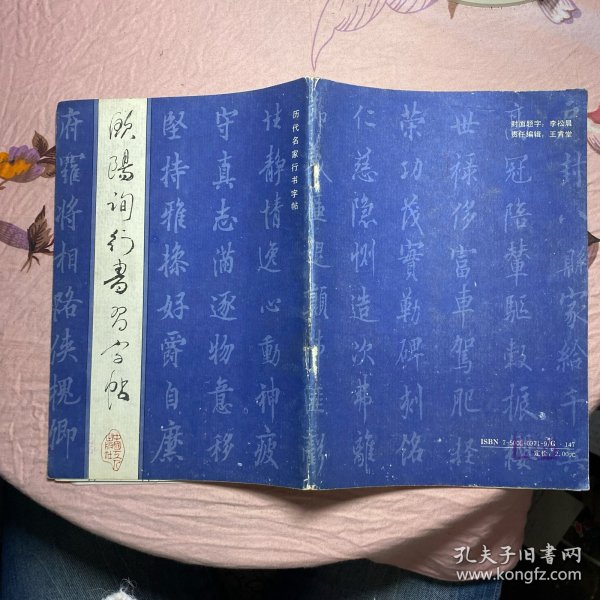 欧陽询行書习字帖
历代名家行书字帖
堅持雅操好爵自縻
守真志满逐物意移
性静情逸心動神疲
仁慈隐恻造次弗離
策功茂實勒碑刻銘
世禄侈富車駕肥輕
高冠陪輦驅轂振纓
户封八縣家给千兵
府羅将相路俠槐卿
封面题字：李松晨
责任编辑：王青堂
ISBN 7-
G·147
定价：2.00元
孔夫子旧书网
www.kongfz.com